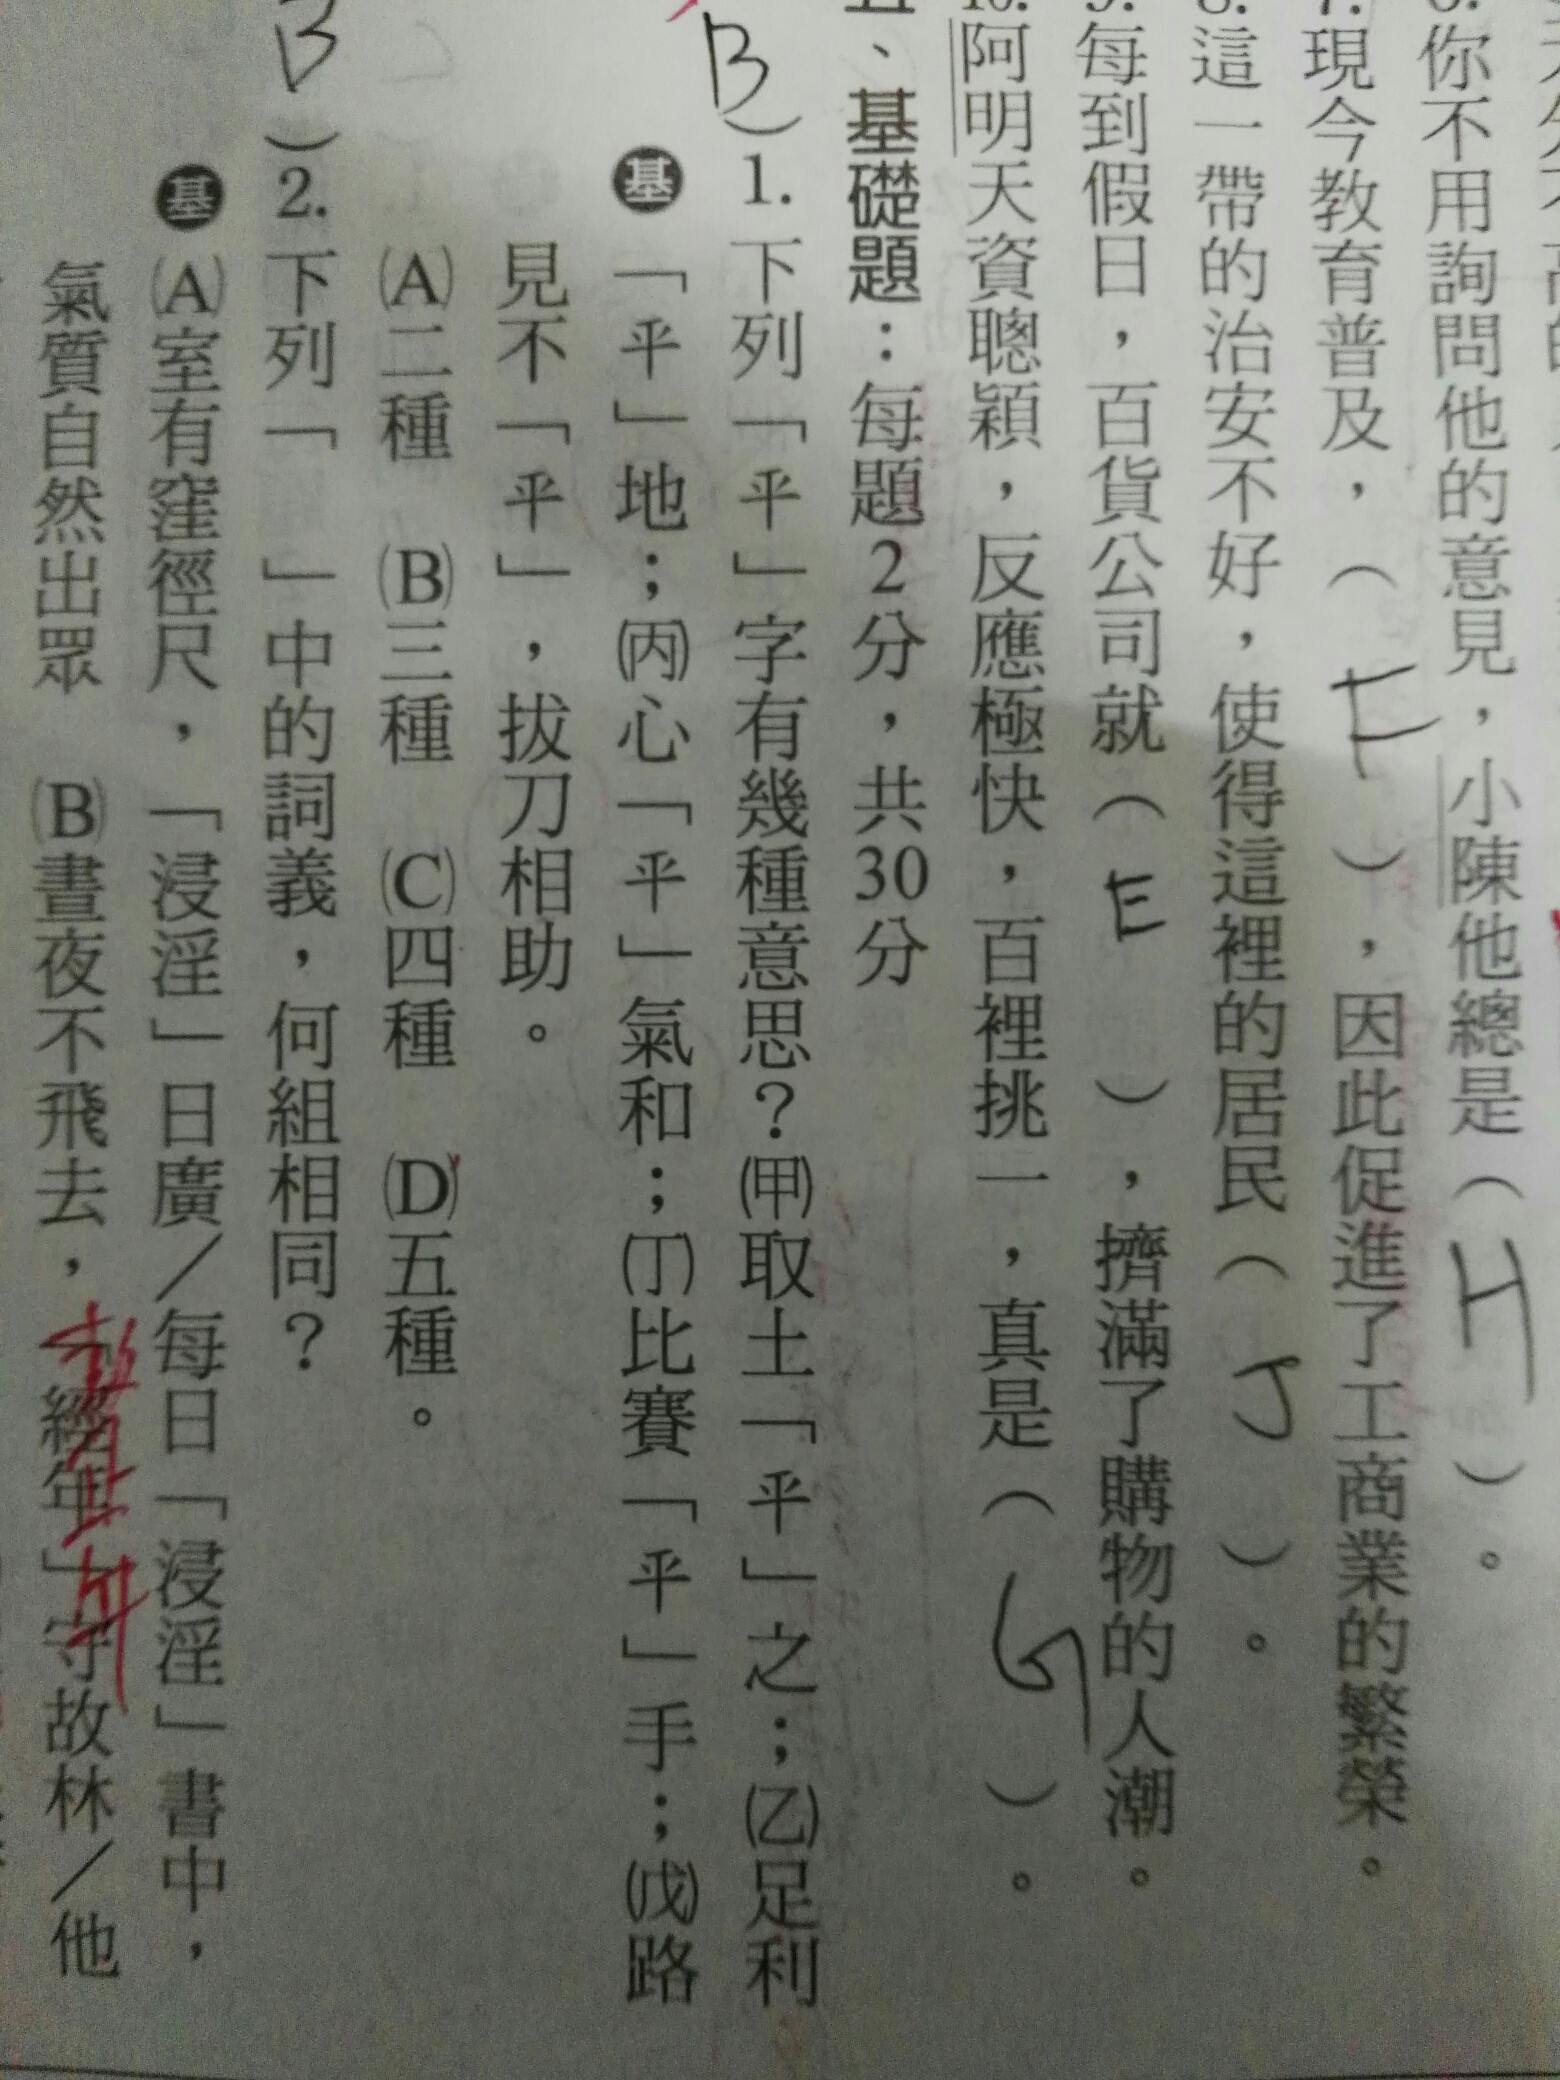 6.你不用詢問他的意見，小陳他總是（H）。
7.現今教育普及，（F），因此促進了工商業的繁榮。
8.這一帶的治安不好，使得這裡的居民（J）。
9.每到假日，百貨公司就（E），擠滿了購物的人潮。
10.阿明天資聰穎，反應極快，百裡挑一，真是（G）。
五、基礎題：每題2分，共30分
B）1.下列「平」字有幾種意思？(甲)取土「平」之；(乙)足利
基「平」地；(丙)心「平」氣和；(丁)比賽「平」手；(戊)路
見不「平」，拔刀相助。
(A)二種 (B)三種 (C)四種 (D)五種。
B）2.下列「 」中的詞義，何組相同？
基(A)室有窪徑尺，「浸淫」日廣／每日「浸淫」書中，
氣質自然出眾 (B)晝夜不飛去，「經年」守故林／他